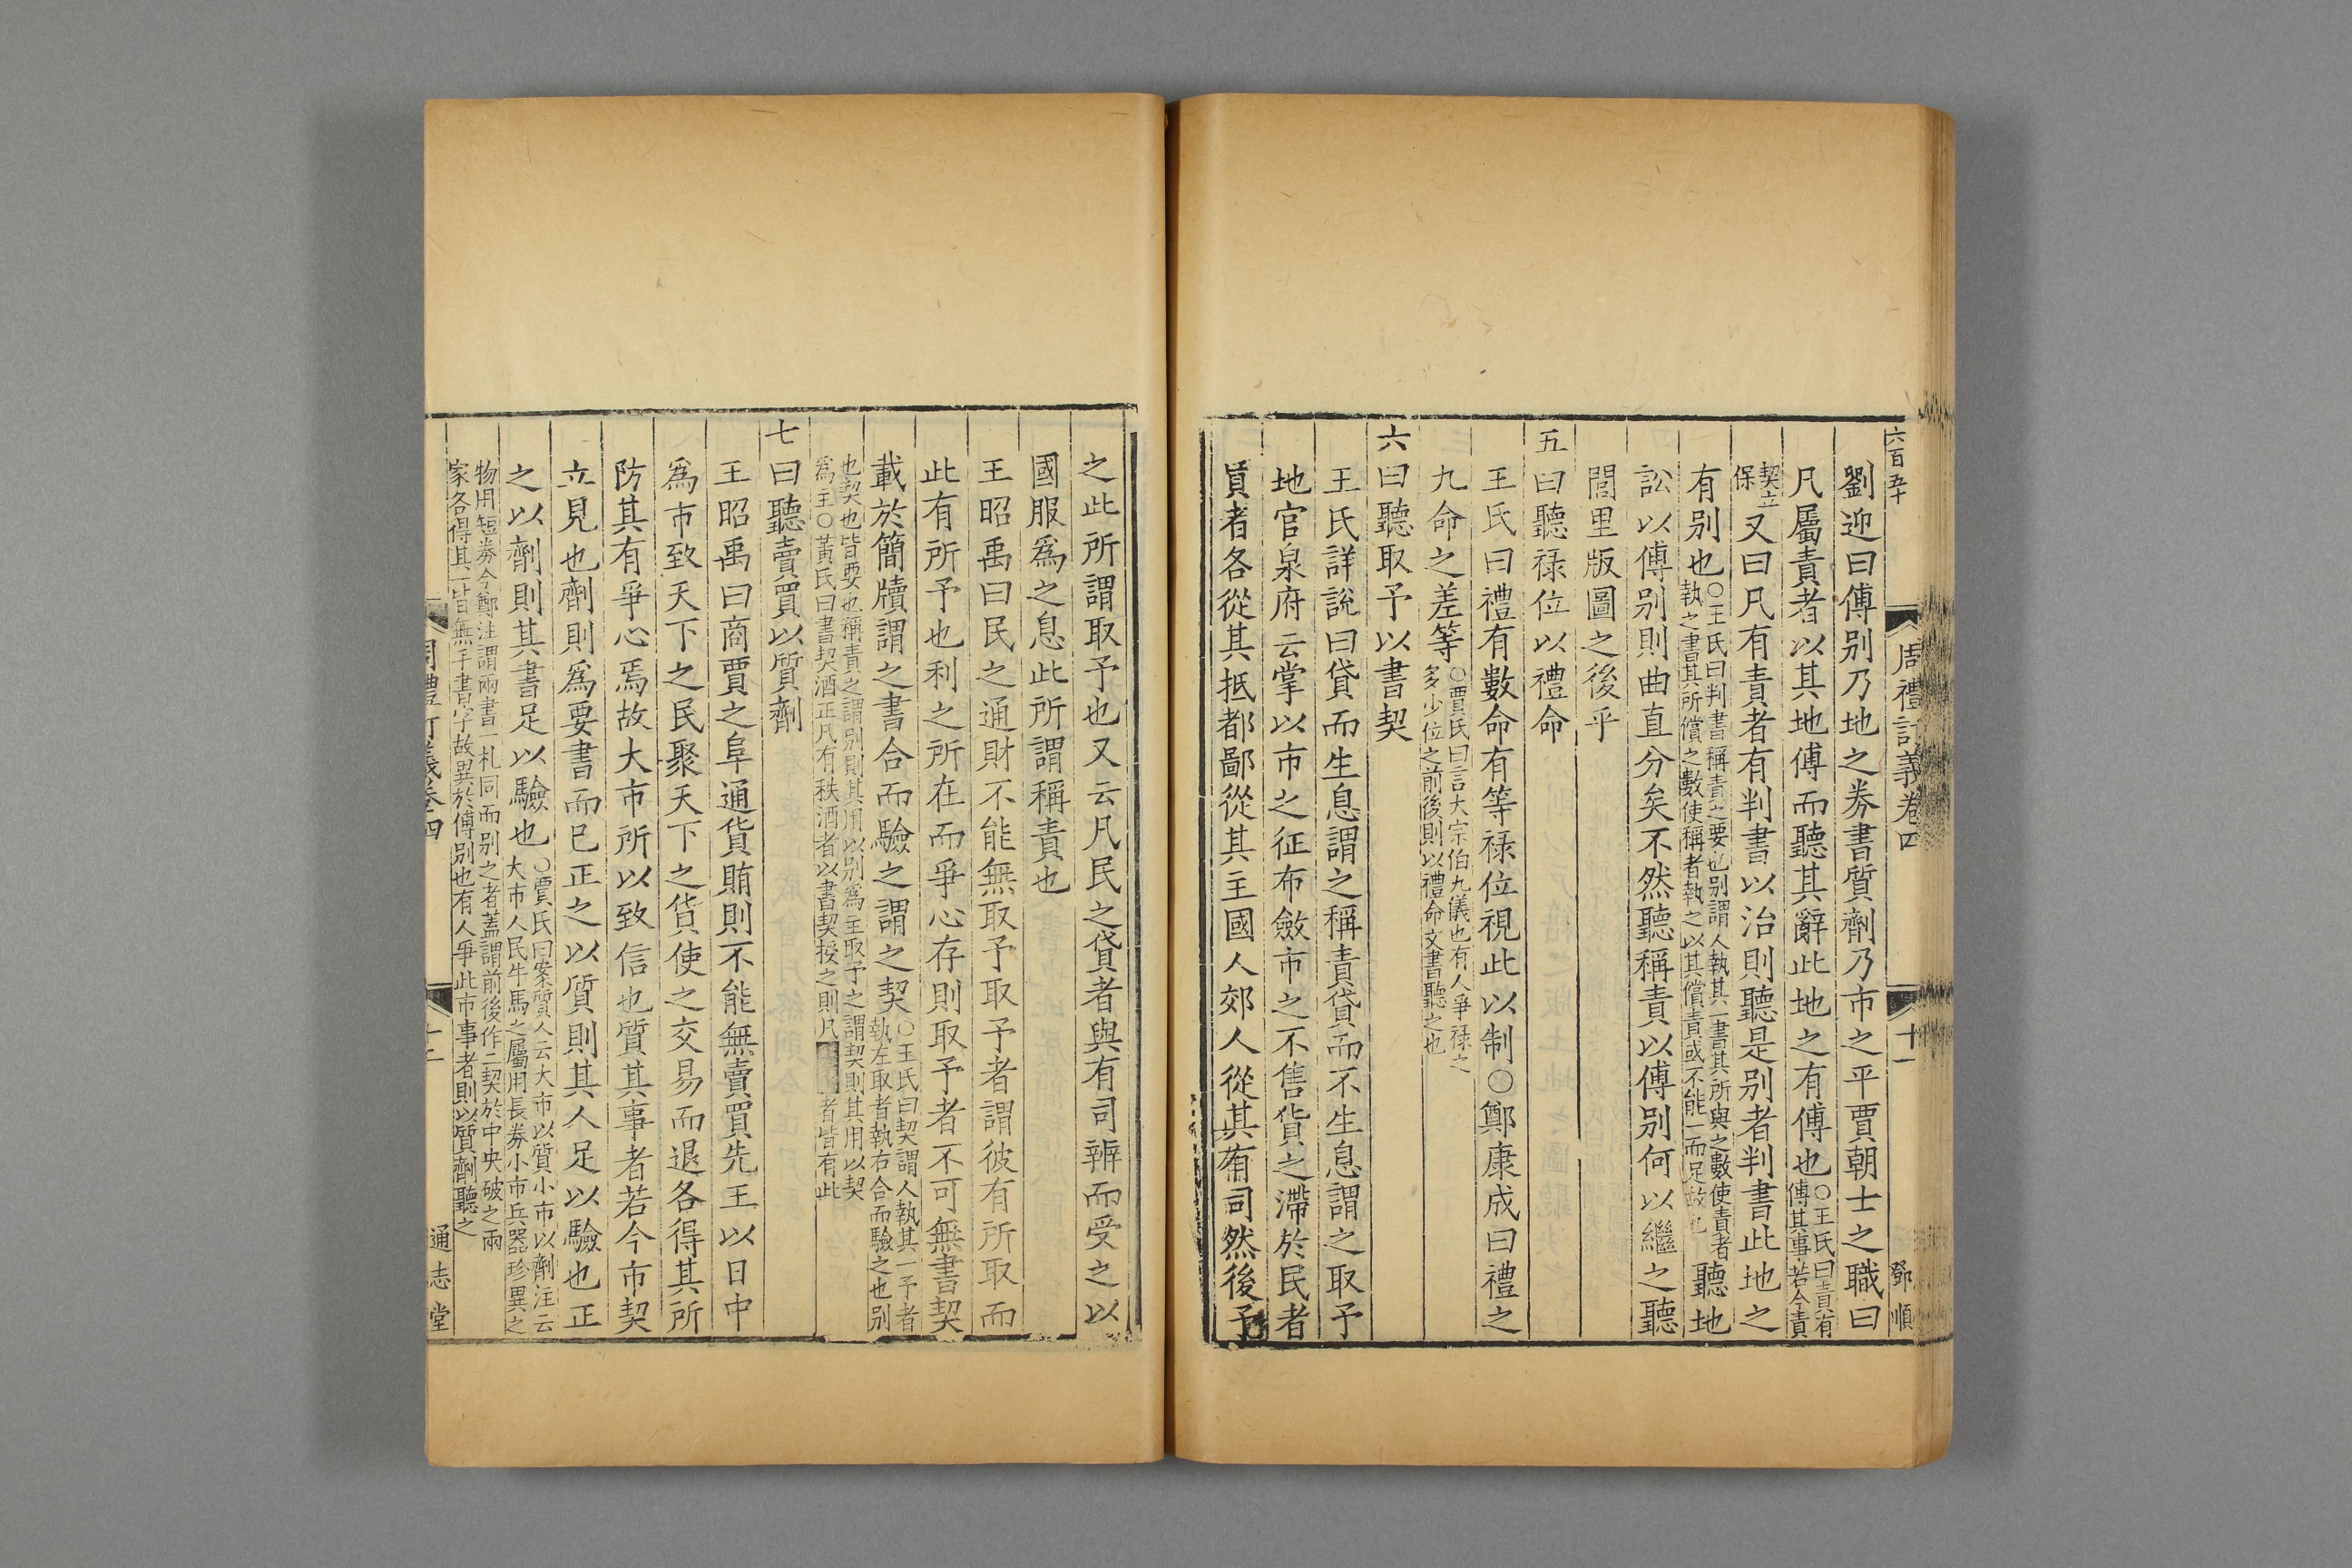 六百五十 周禮訂義卷四 十一 鄧順
劉迎曰傅别乃地之券書質劑乃市之平賈朝士之職曰
凡屬責者以其地傅而聽其辭此地之有傅也○王氏曰責有傅其事若今責
契立保又曰凡有責者有判書以治則聽是别者判書此地之
有别也○王氏曰判書稱責之要也别謂人執其一書其所與之數使責者執之書其所償之數使稱者執之以其償責或不能一而足故也聽地
訟以傅别則曲直分矣不然聽稱責以傅别何以繼之聽
閭里版圖之後乎
五曰聽禄位以禮命
王氏曰禮有數命有等禄位視此以制○鄭康成曰禮之
九命之差等○賈氏曰言大宗伯九儀也有人爭禄之多少位之前後則以禮命文書聽之也
六曰聽取予以書契
王氏詳說曰貸而生息謂之稱責貸而不生息謂之取予
地官泉府云掌以市之征布斂市之不售貨之滯於民者
買者各從其抵都鄙從其主國人郊人從其有司然後予
之此所謂取予也又云凡民之貸者與有司辨而受之以
國服爲之息此所謂稱責也
王昭禹曰民之通財不能無取予取予者謂彼有所取而
此有所予也利之所在而爭心存則取予者不可無書契
載於簡牘謂之書合而驗之謂之契○王氏曰契謂人執其一予者執左取者執右合而驗之也别
也契也皆要也稱責之謂别則其用以别爲主取予之謂契則其用以契爲主○黃氏曰書契酒正凡有秩酒者以書契授之則凡者皆有此
七曰聽賣買以質劑
王昭禹曰商賈之阜通貨賄則不能無賣買先王以日中
爲市致天下之民聚天下之貨使之交易而退各得其所
防其有爭心焉故大市所以致信也質其事者若今市契
立見也劑則爲要書而已正之以質則其人足以驗也正
之以劑則其書足以驗也○賈氏曰案質人云大市以質小市以劑注云大市人民牛馬之屬用長券小市兵器珍異之
物用短券今鄭注謂兩書一札同而别之者蓋謂前後作二契於中央破之兩家各得其一皆無手書字故異於傅别也有人爭此市事者則以質劑聽之
周禮訂義卷四 十二 通志堂